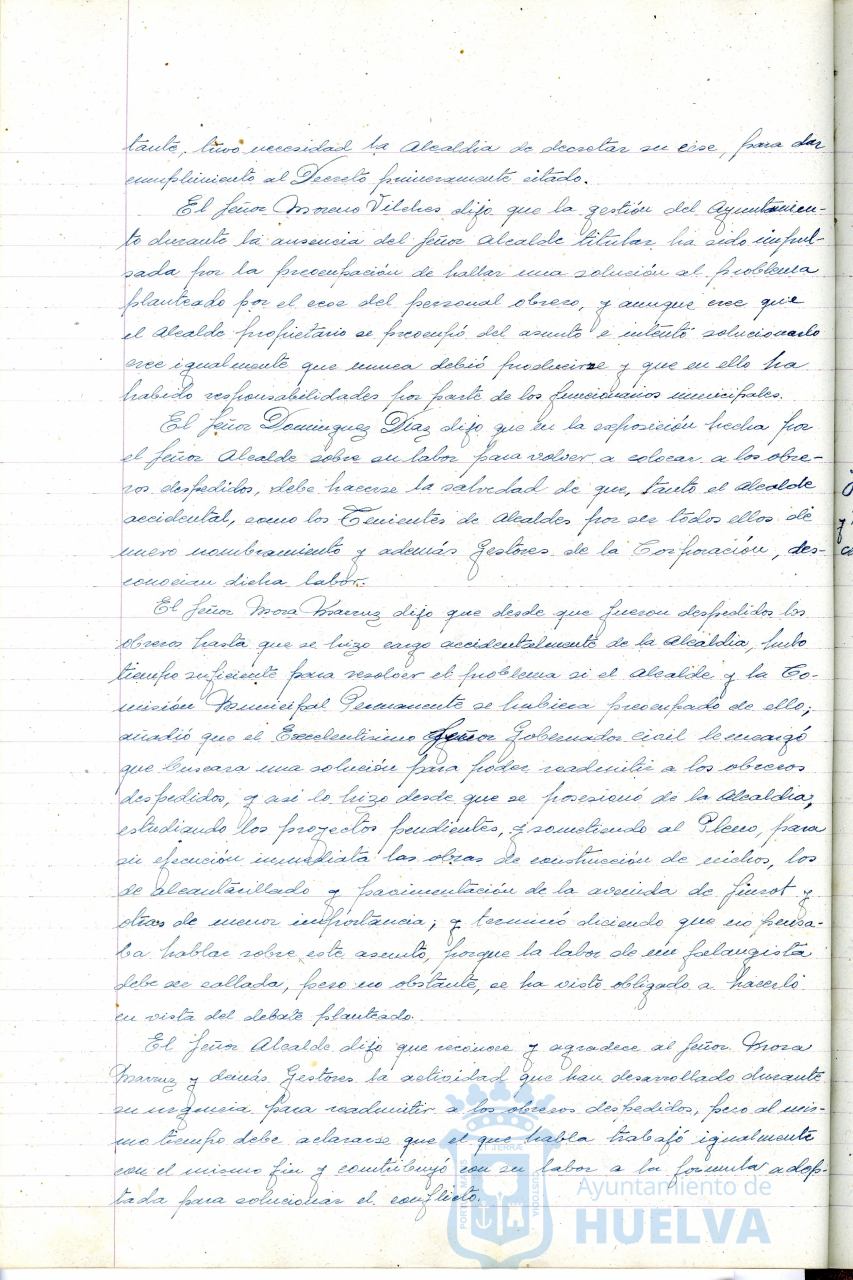 tante, tuvo necesidad la Alcaldia de decretar su cese, para dar
cumplimiento al Decreto primeramente citado.
El Señor Moreno Vilches dijo que la gestión del Ayuntamien-
to durante la ausencia del Señor Alcalde titular, ha sido impul-
sada por la preocupación de hallar una solución al problema
planteado por el cese del personal obrero, y aunque cree que
el Alcalde propietario se preocupó del asunto e intentó solucionarlo
cree igualmente que nunca debió producirse y que en ello ha
habido responsabilidades por parte de los funcionarios municipales.
El Señor Dominguez Diaz dijo que en la exposición hecha por
el Señor Alcalde sobre su labor para volver a colocar a los obre-
ros despedidos, debe hacerse la salvedad de que, tanto el Alcalde
accidental, como los Tenientes de Alcaldes por ser todos ellos de
nuevo nombramiento y además Gestores de la Corporación, des-
conocian dicha labor.
El Señor Mora Marruz dijo que desde que fueron despedidos los
obreros hasta que se hizo cargo accidentalmente de la Alcaldia, hubo
tiempo suficiente para resolver el problema si el Alcalde y la Co-
misión Municipal Permanente se hubiera preocupado de ello;
añadió que el Excelentisimo Señor Gobernador Civil le encargó
que buscara una solución para poder readmitir a los obreros
despedidos, y asi lo hizo desde que se posesionó de la Alcaldia,
estudiando los proyectos pendientes, y sometiendo al Pleno, para
su ejecución inmediata las obras de construcción de nichos, los
de alcantarillado y pavimentación de la avenida de y
otras de menor importancia; y terminó diciendo que no pensa-
ba hablar sobre este asunto, porque la labor de un falangista
debe ser callada, pero no obstante, se ha visto obligado a hacerlo
en vista del debate planteado.
El Señor Alcalde dijo que reconoce y agradece al Señor Mora
Marruz y demás Gestores la actividad que han desarrollado durante
su para readmitir a los obreros despedidos, pero al mis-
mo tiempo debe aclararse que el que habla trabajó igualmente
con el mismo fin y contribuyó con su labor a la formula adop-
tada para solucionar el conflicto.
PORTUS MARIS
TERRAE
CUSTODIA
Ayuntamiento de
HUELVA